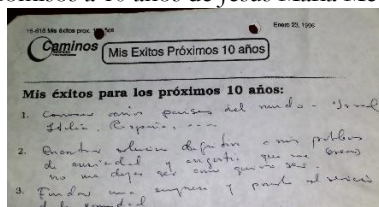 10 años de Jesús María Me
15-616 Mis éxitos prox. 10 años
Enero 23, 1996
Caminos
Mis Exitos Próximos 10 años
Mis éxitos para los próximos 10 años:
1. Conocer varios países del mundo - Israel
Italia, España, ...
2. Encontrar solución definitiva a mis problemas
de ansiedad y angustia que me
no me dejan ser como quiero ser.
3. Fundar una empresa y ponerla al servicio
de la comunidad